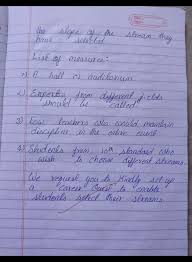 the slopes of the stream they
have selected
List of measures:
1) A hall or auditorium
2) Experts from different jobs
should be called
3) Few teachers who would maintain
discipline in the entire event
4) Students from 10th standard who
wish to choose different streams
We request you to kindly set up
a Career Quest to enable
students select their streams